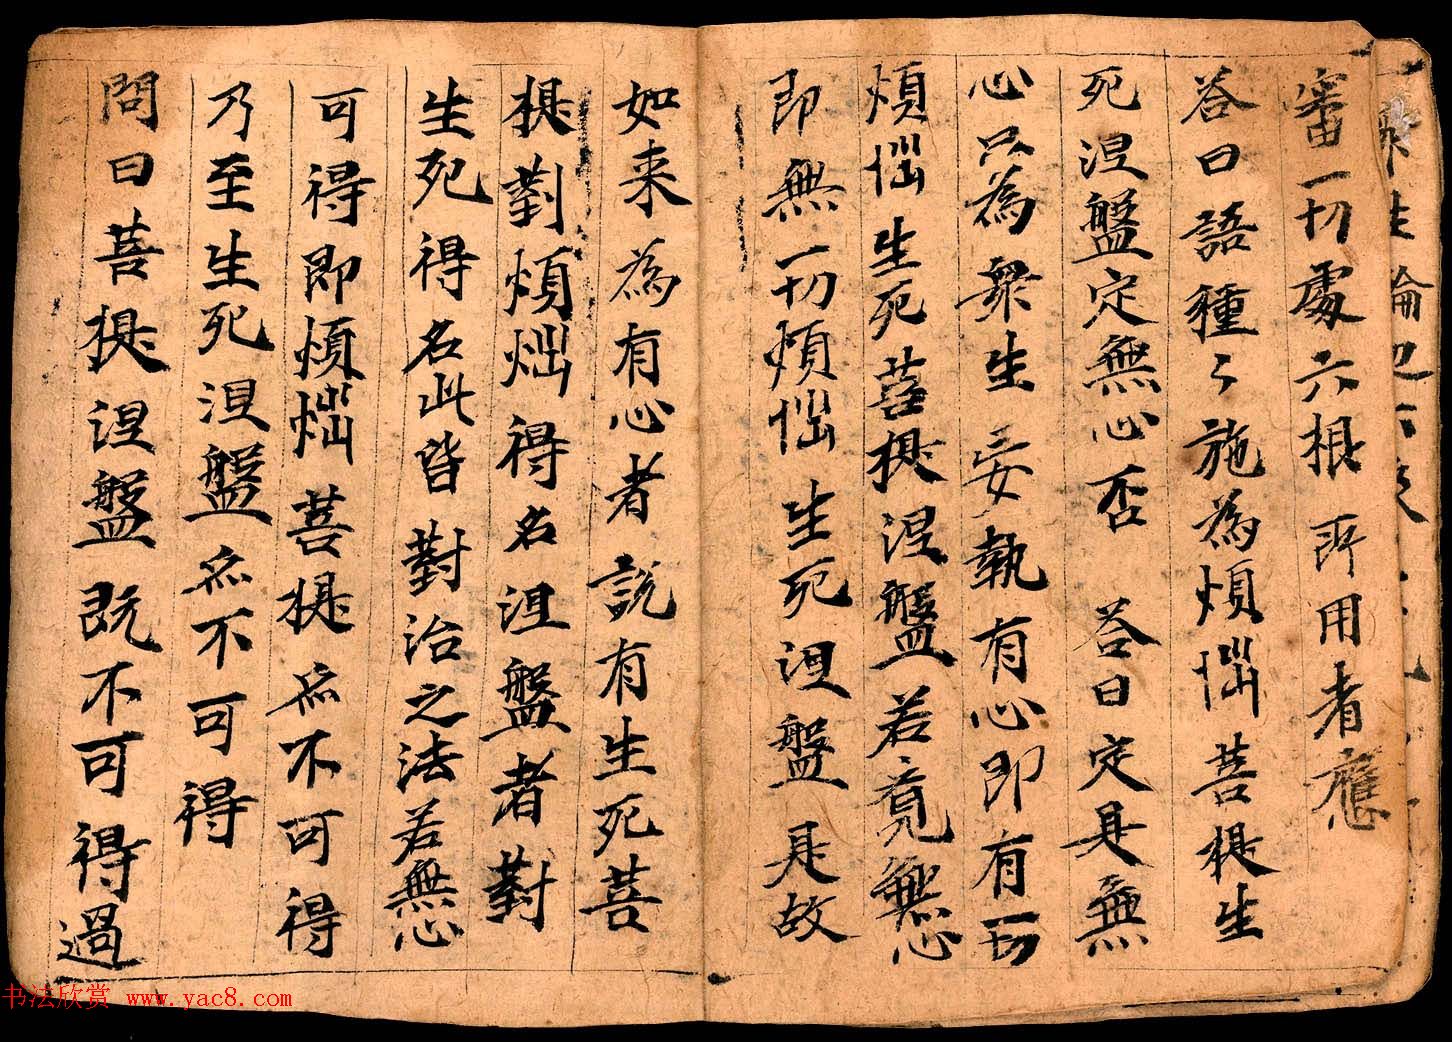 審一切處六根所用者應
答曰語種〻施為煩惱菩提生
死涅盤定無心否 答曰定是無
心只為衆生妄執有心即有一切
煩惱生死菩提涅盤若覓無心
即無一切煩惱生死涅盤是故
如来為有心者說有生死菩
提對煩惱得名涅盤者對
生死得名此皆對治之法若無心
可得即煩惱菩提亦不可得
乃至生死涅盤亦不可得
問曰菩提涅盤既不可得過
书法欣赏 www.yac8.com